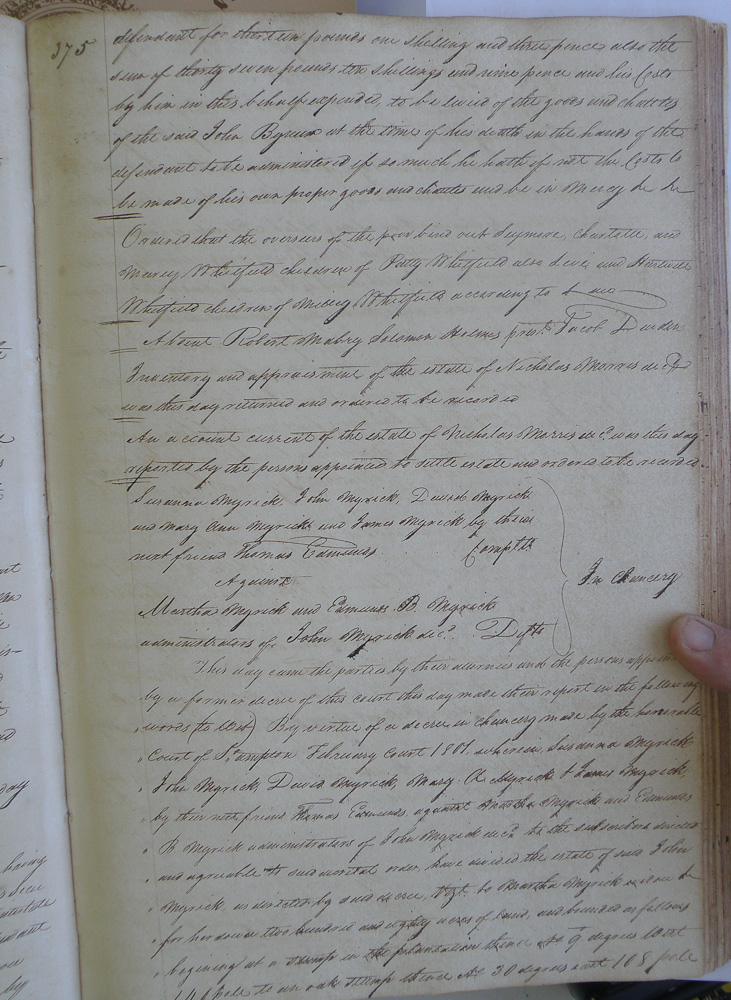 375
defendant for thirteen pounds one shilling and three pence also the
sum of thirty seven pounds ten shillings and nine pence and his Costs
by him in this behalf expended, to be levied of the goods and chattles
of the said John Bynum at the time of his death in the hands of the
defendant to be administered if so much he hath if not the Costs to
be made of his own proper goods and chattles and be in Mercy &c &c
Ordered that the overseers of the poor bind out Seymore, and
Whitfield children of Patty Whitfield also and
Whitfield children of Whitfield according to Law
Absent Robert Mabry Solomon Holmes prest. Jacob Darden
Inventory and appraisment of the estate of Nicholas Morris decd
was this day returned and ordered to be recorded
An account current of the estate of Nicholas Morris decd. was this day
reported by the persons appointed to settle estate and ordered to be recorded.
Susanna Myrick, John Myrick, David Myrick
and Mary Ann Myrick and James Myrick by their
next friend Thomas Edmunds Complts
Against
In Chancery
Martha Myrick and Edmunds B. Myrick
administrators of John Myrick decd. Defts
This day came the parties by their attornies and the persons
by a former decree of this court this day made their report in the following
words (to wit) By virtue of a decree in Chancery made by the honorable
Court of S.ampton February Court 1801, wherein Susanna Myrick
John Myrick, David Myrick, Mary A Myrick & James Myrick,
by their next friend Thomas Edmunds against Martha Myrick and Edmunds
B Myrick administrators of John Myrick decd We the subscribers directed
and agreable to said order, have divided the estate of said John
Myrick, as directed by said decree, to Martha Myrick widow &c
for her dower two hundred and eighty acres of land, and bounded as follows
begining at a stump in the plantation thence 9 degrees West
pole to an oak stump thence 30 degrees east 168 pole